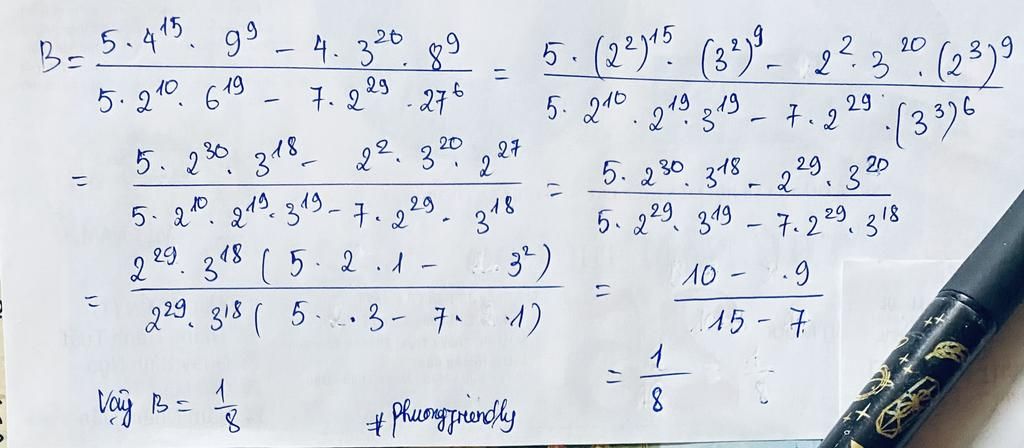 B = \frac{5 \cdot 4^{15} \cdot 9^9 - 4 \cdot 3^{20} \cdot 8^9}{5 \cdot 2^{10} \cdot 6^{19} - 7 \cdot 2^{29} \cdot 27^6} = \frac{5 \cdot (2^2)^{15} \cdot (3^2)^9 - 2^2 \cdot 3^{20} \cdot (2^3)^9}{5 \cdot 2^{10} \cdot 2^{19} \cdot 3^{19} - 7 \cdot 2^{29} \cdot (3^3)^6}
= \frac{5 \cdot 2^{30} \cdot 3^{18} - 2^2 \cdot 3^{20} \cdot 2^{27}}{5 \cdot 2^{10} \cdot 2^{19} \cdot 3^{19} - 7 \cdot 2^{29} \cdot 3^{18}} = \frac{5 \cdot 2^{30} \cdot 3^{18} - 2^{29} \cdot 3^{20}}{5 \cdot 2^{29} \cdot 3^{19} - 7 \cdot 2^{29} \cdot 3^{18}}
= \frac{2^{29} \cdot 3^{18} ( 5 \cdot 2 \cdot 1 - 3^2 )}{2^{29} \cdot 3^{18} ( 5 \cdot \cdot 3 - 7 \cdot \cdot 1 )} = \frac{10 - \cdot 9}{15 - 7}
= \frac{1}{8}
Vậy B = \frac{1}{8} #phuongfriendly